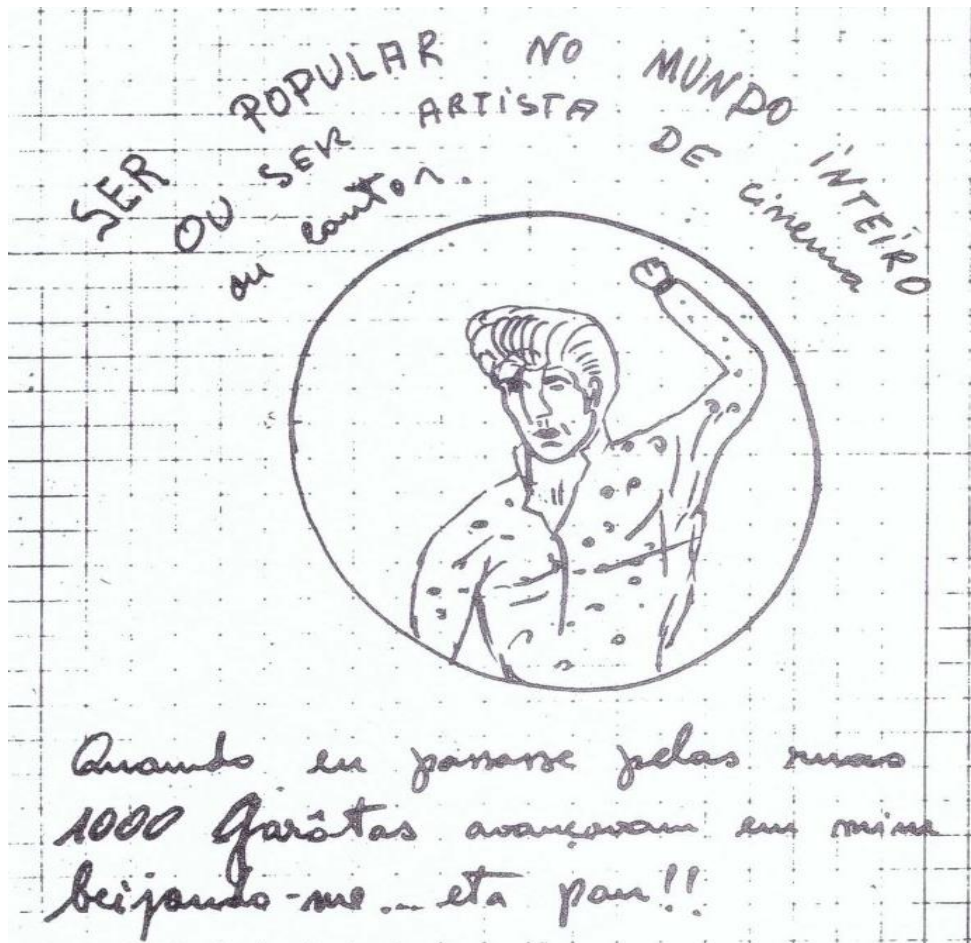 SER POPULAR NO MUNDO INTEIRO
OU SER ARTISTA DE cinema
ou cantor.
Quando eu passasse pelas ruas
1000 Garôtas avançavam em mim
beijando-me... eta pau!!